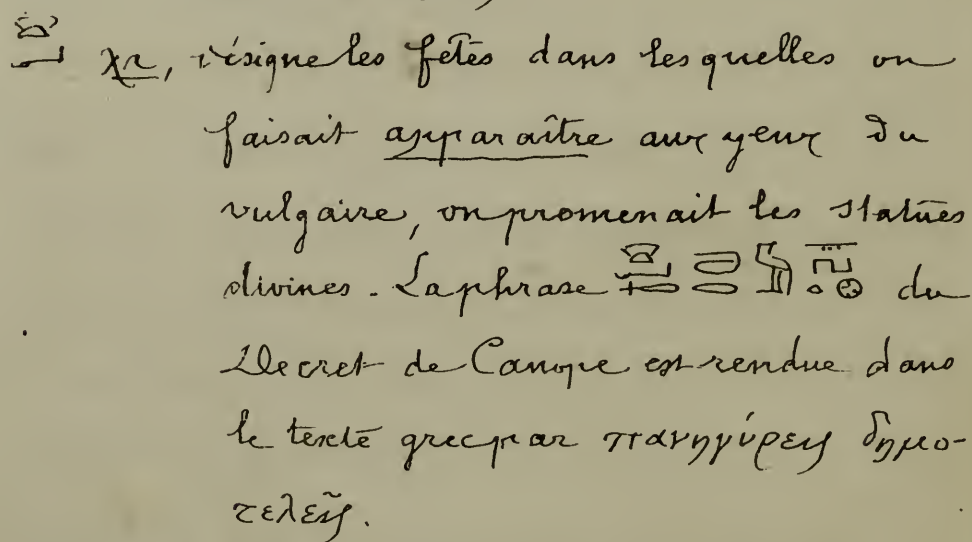 χα, désigne les fêtes dans lesquelles on
faisait apparaître aux yeux du
vulgaire, on promenait les statues
divines. La phrase du
Décret de Canope est rendue dans
le texte grec par πανηγύρεις δημο-
τελεῖς.